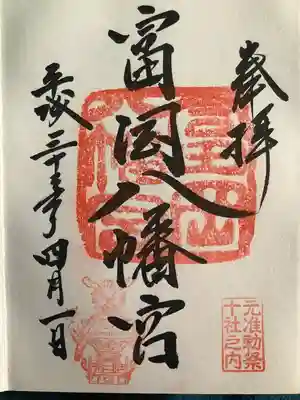 奉拝
元准勅祭
十社之内
富岡八幡宮
平成三十年四月一日